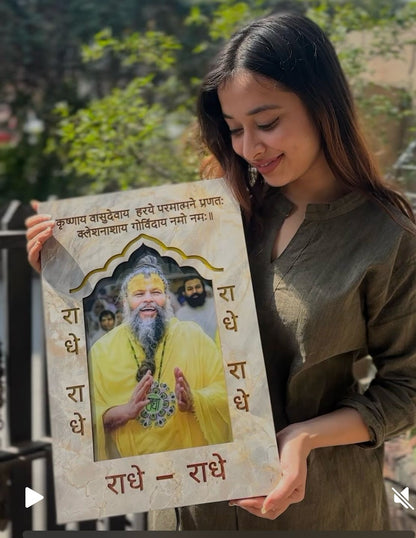 कृष्णाय वासुदेवाय हरये परमात्मने प्रणत:
क्लेशनाशाय गोविंदाय नमो नमः॥
रा
धे
रा
धे
रा
धे
रा
धे
राधे – राधे